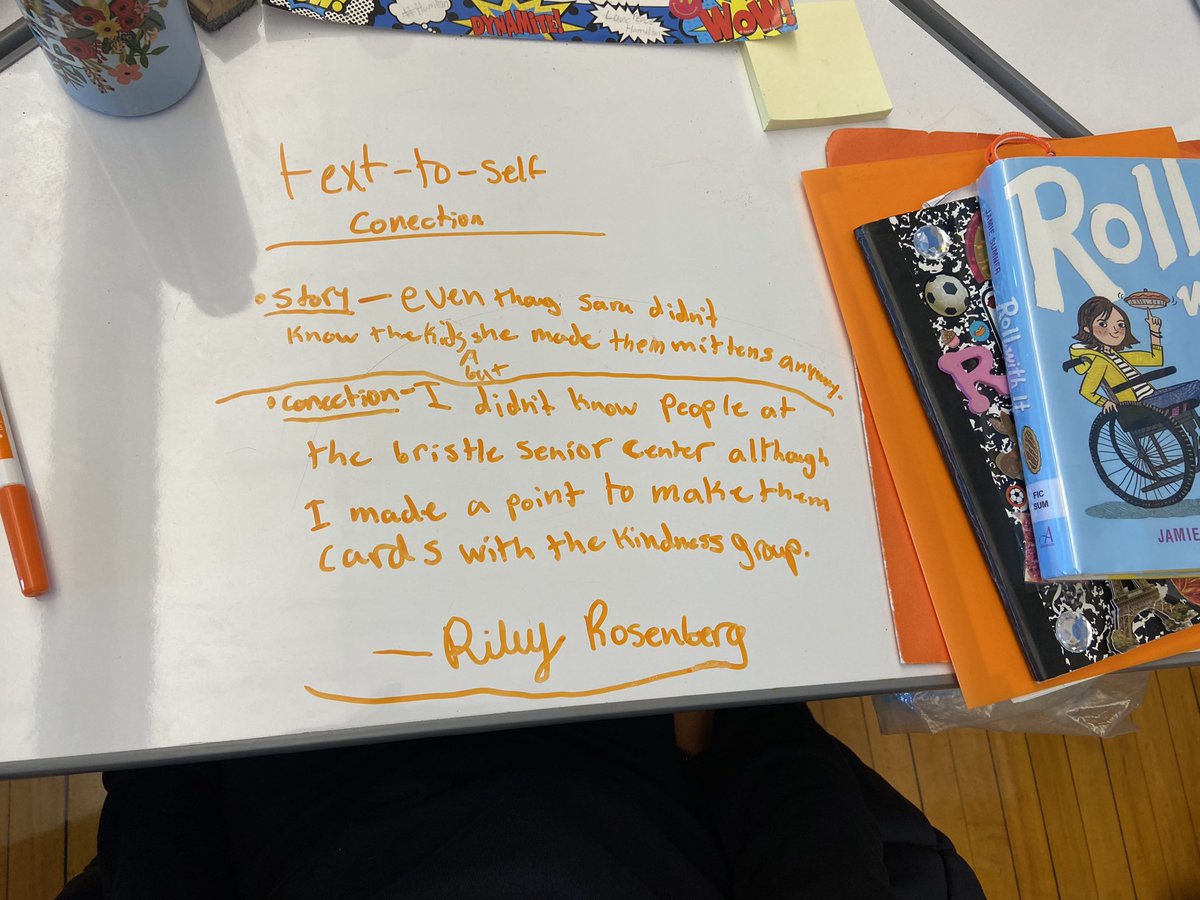 #Hamilton
DYNAMITE!
WOW!
text-to-self
Conection
• Story — even thoug sara didn't
know the kids she made them mittens anyway.
^
but
• conection - I didn't know people at
the bristle senior center although
I made a point to make them
cards with the kindness group.
— Riley Rosenberg
JAMIE SUMNER
Roll with It
FIC
SUM
A
Roll
R
JAMIE